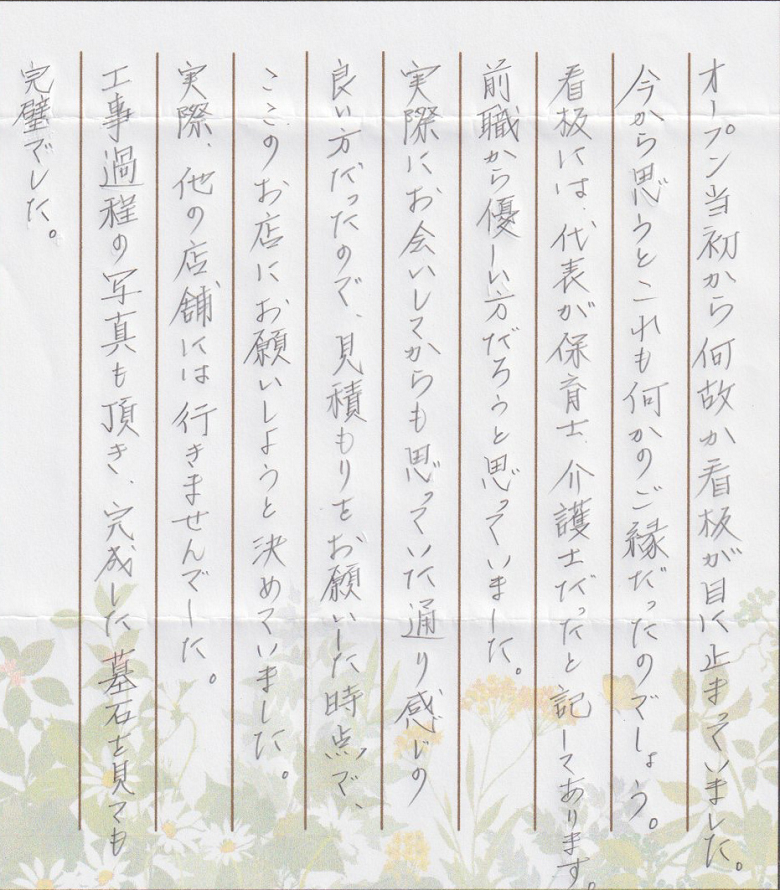 オープン当初から何故か看板が目に止まっていました。
今から思うとこれも何かのご縁だったのでしょう。
看板には、代表が保育士、介護士だったと記してあります。
前職から優しい方だろうと思っていました。
実際にお会いしてからも思っていた通り感じの
良い方だったので、見積もりをお願いした時点で、
ここのお店にお願いしようと決めていました。
実際、他の店舗には行きませんでした。
工事過程の写真も頂き、完成した墓石を見ても
完璧でした。